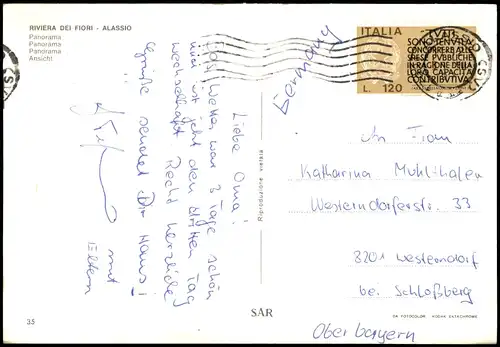 RIVIERA DEI FIORI - ALASSIO
Panorama
Panoráma
Panorama
Ansicht
Liebe Oma!
Das Wetter war 3 Tage schön
und ist jetzt den dritten Tag
wechselhaft. Recht herzliche
Grüße sendet Dir Hans!
mit
Eltern
Riproduzione vietata
SAR
35
Germany
ITALIA
SONO TENUTI A
CONCORRERE ALLE
SPESE PUBBLICHE
IN RAGIONE DELLA
LORO CAPACITÀ
CONTRIBUTIVA
L. 120
An Frau
Katharina Mühlthaler
Westerndorferstr. 33
8201 Westerndorf
bei Schloßberg
Oberbayern
FOTOCOLOR KODAK EKTACHROME